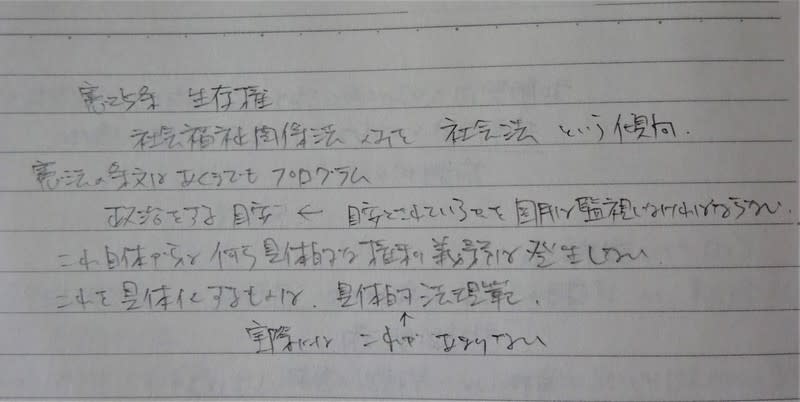 憲25条 生存権
社会福祉関係法 全てを 社会法 という傾向.
憲法の条文は あくまでも プログラム
政治をする 目安 ← 目安とされているかを 国民は 監視しなければならない.
これ自体からは 何ら具体的な 権利 義務は 発生しない.
これを 具体化するものは、具体的 法規範.
↑
実際には これが あまりない